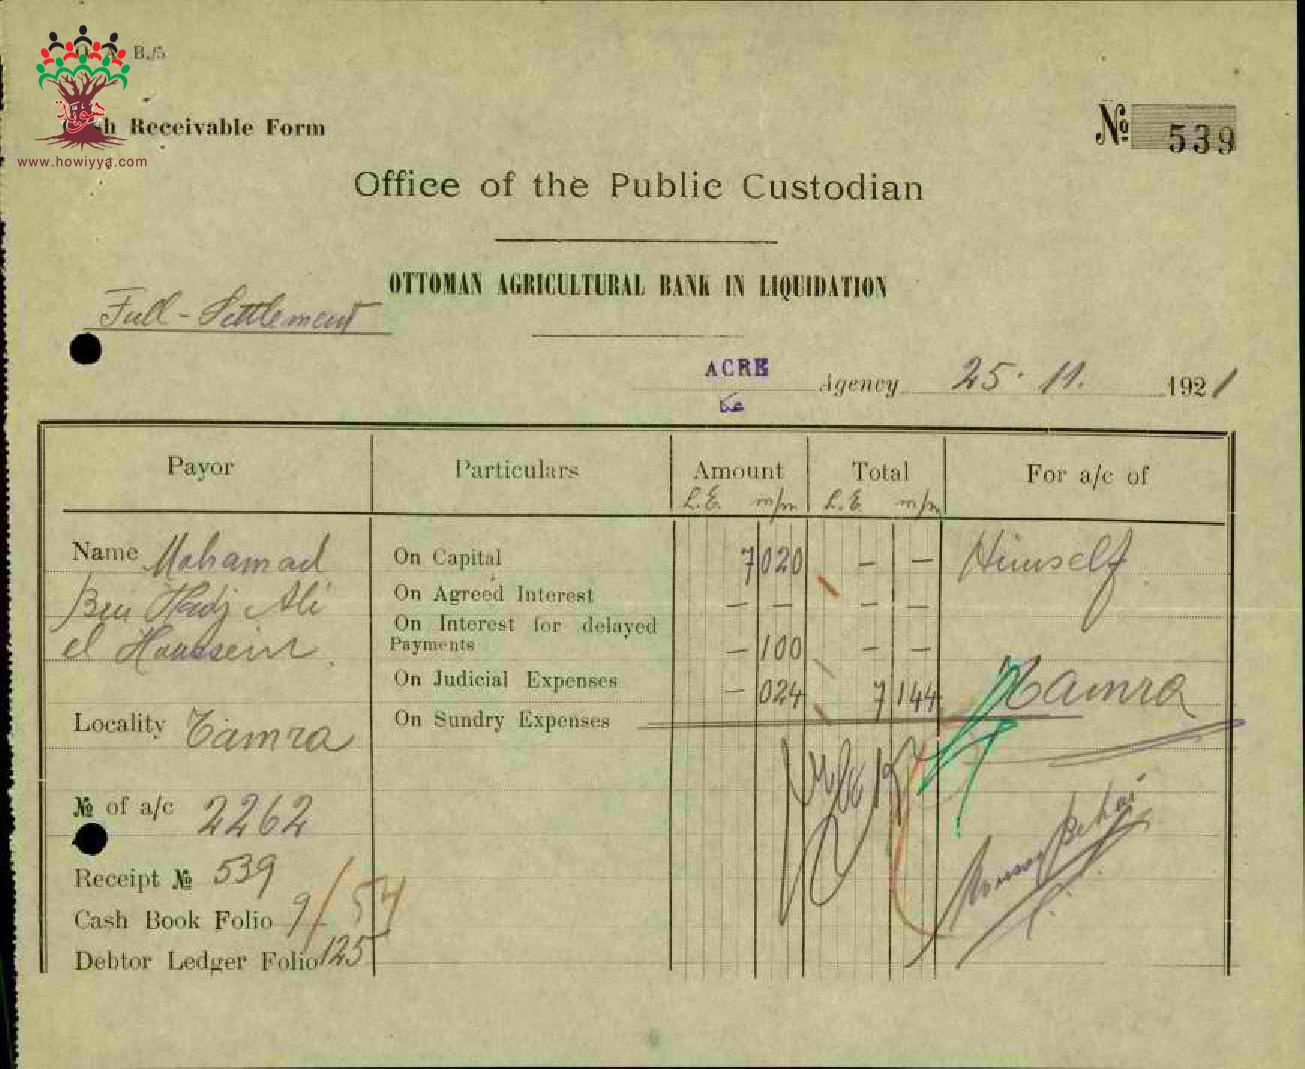 O. A. B./5
Cash Receivable Form
هوية
www.howiyya.com
№ 539
Office of the Public Custodian
OTTOMAN AGRICULTURAL BANK IN LIQUIDATION
Full - Settlement
ACRE Agency 25. 11. 1921
عكا
Payor Particulars Amount Total For a/c of
L.E. m/m L.E. m/m
Name Mohamad On Capital 7 020 — — Himself
Ben Hadj Ali On Agreed Interest — — — —
el Haussein On Interest for delayed Payments — 100 — —
On Judicial Expenses — 024 7 144 Tamra
Locality Tamra On Sundry Expenses
№ of a/c 2262
Receipt № 539
Cash Book Folio 9/54
Debtor Ledger Folio 125